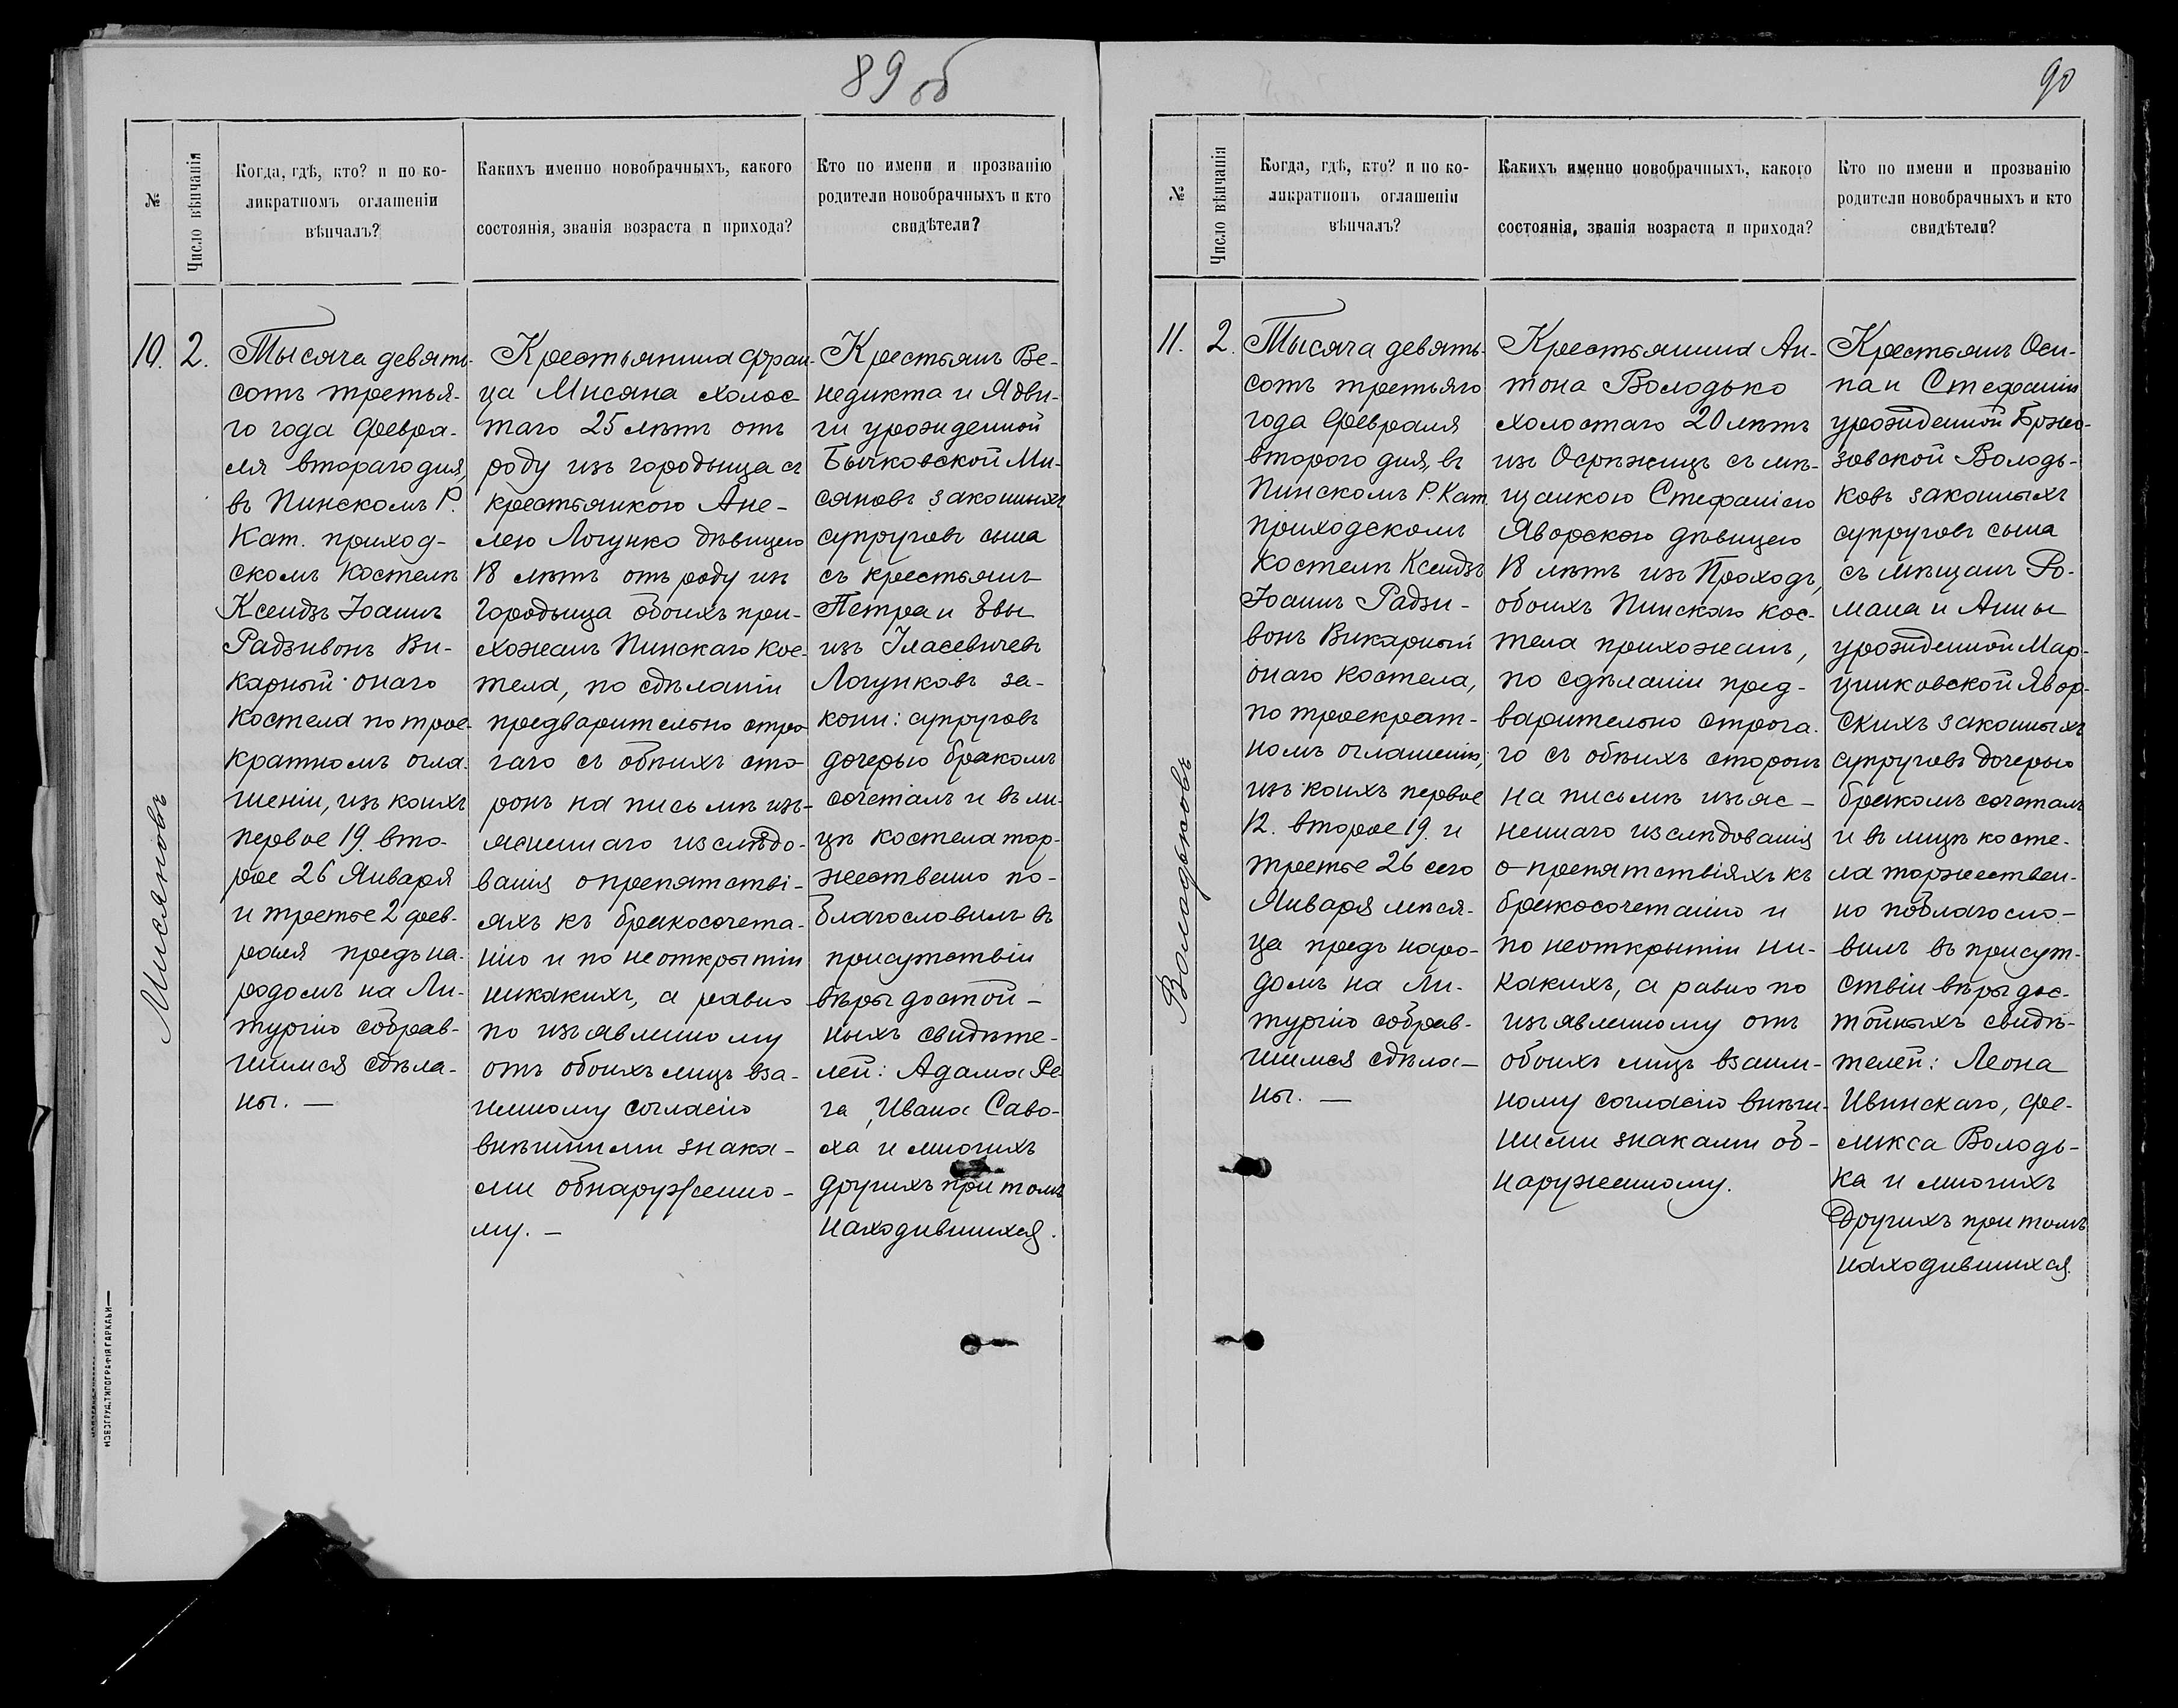 89 об
№
Число вѣнчанія
Когда, гдѣ, кто? и по ко-
ликратномъ оглашеніи
вѣнчалъ?
Какихъ именно новобрачныхъ, какого
состоянія, званія возраста и прихода?
Кто по имени и прозванію
родители новобрачныхъ и кто
свидѣтели?
10.
2.
Мисяновъ
Тысяча девять-
сотъ третья-
го года Февра-
ля второго дня,
въ Пинскомъ Р.
Кат. приход-
скомъ костелѣ
Ксендзъ Іоаннъ
Радзивонъ Ви-
карный онаго
Костела по трое-
кратномъ огла-
шеніи, изъ коихъ
первое 19. вто-
рое 26 Января
и третье 2 фев-
раля предъ на-
родомъ на Ли-
тургію собрав-
шимся сдѣла-
ны. —
Крестьянина Фран-
ца Мисяна холос-
таго 25 лѣтъ отъ
роду изъ городыща съ
крестьянкою Ане-
лею Логунко дѣвицею
18 лѣтъ отъ роду изъ
Городыща обоихъ при-
хожанъ Пинскаго Кос-
тела, по сдѣланіи
предварительно стро-
гаго съ обѣихъ сто-
ронъ на письмѣ изъ-
ясненнаго изслѣдо-
ванія о препятстві-
яхъ къ бракосочета-
нію и по неоткрытіи
никакихъ, а равно
по изъявленному
отъ обоихъ лицъ вза-
имному согласію
внѣшними знака-
ми обнаруженно-
му. —
Крестьянъ Бе-
недикта и Ядви-
ги урожденной
Бычковской Ми-
сяновъ законныхъ
супруговъ сына
съ крестьянъ
Петра и Евы
изъ Гласевичевъ
Логунковъ за-
конн: супруговъ
дочерью бракомъ
сочеталъ и въ ли-
цѣ костела тор-
жественно по-
благословилъ въ
присутствіи
вѣры достой-
ныхъ свидѣте-
лей: Адама Ре-
га, Ивана Саво-
ха и многихъ
другихъ при томъ
находившихся.
НОВОГРУД. ТИПОГРАФІЯ ГАРКАВИ
90
№
Число вѣнчанія
Когда, гдѣ, кто? и по ко-
ликратномъ оглашеніи
вѣнчалъ?
Какихъ именно новобрачныхъ, какого
состоянія, званія возраста и прихода?
Кто по имени и прозванію
родители новобрачныхъ и кто
свидѣтели?
11.
2.
Володьковъ
Тысяча девять-
сотъ третьяго
года Февраля
второго дня, въ
Пинскомъ Р. Кат.
приходскомъ
Костелѣ Ксендзъ
Іоаннъ Радзи-
вонъ Викарный
онаго костела,
по троекрат-
номъ оглашеніи,
изъ коихъ первое
12. второе 19. и
третье 26 сего
Января мѣся-
ца предъ наро-
домъ на Ли-
тургію собрав-
шимся сдѣла-
ны. —
Крестьянина Ан-
тона Володько
холостаго 20 лѣтъ
изъ Осрѣжицъ съ мѣ-
щанкою Стефаніею
Яворскою дѣвицею
18 лѣтъ изъ Проходъ,
обоихъ Пинскаго кос-
тела прихожанъ,
по сдѣланіи пред-
варительно строга-
го съ обѣихъ сторонъ
на письмѣ изъяс-
неннаго изслѣдованія
о препятствіяхъ къ
бракосочетанію и
по неоткрытіи ни-
какихъ, а равно по
изъявленному отъ
обоихъ лицъ взаим-
ному согласію внѣш-
ними знаками об-
наруженному.
Крестьянъ Оси-
па и Стефаніи
урожденной Бржо-
зовской Володь-
ковъ законныхъ
супруговъ сына
съ мѣщанъ Ро-
мана и Анны
урожденной Мар-
цинковской Явор-
скихъ законныхъ
супруговъ дочерью
бракомъ сочеталъ
и въ лицѣ косте-
ла торжествен-
но поблагосло-
вилъ въ присут-
ствіи вѣры дос-
тойныхъ свидѣ-
телей: Леона
Ивинскаго, Фе-
ликса Володь-
ка и многихъ
другихъ при томъ
находившихся.